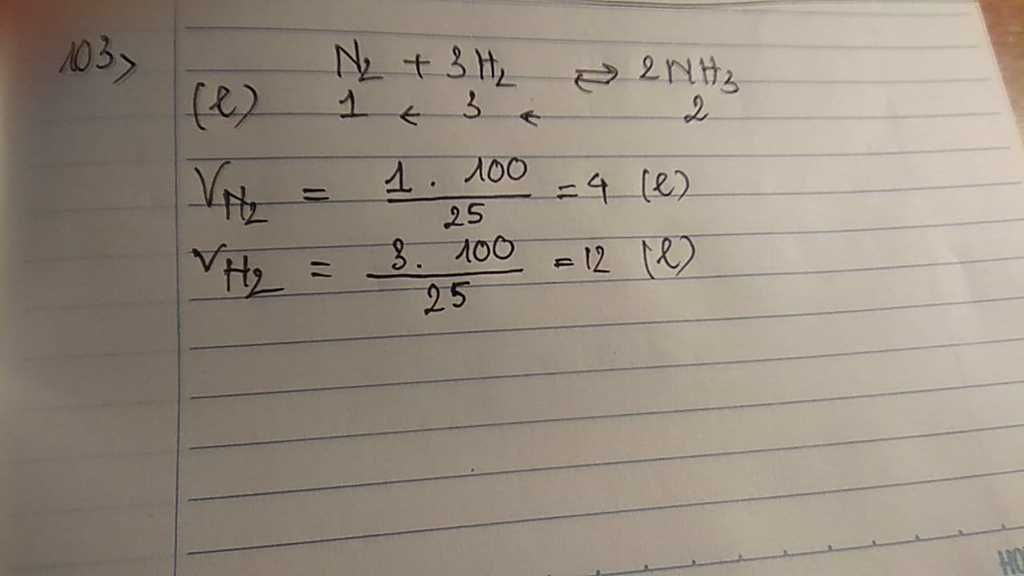 103>
N₂ + 3H₂ ⇌ 2NH₃
(l) 1 ← 3 ← 2
V_N₂ = \frac{1 . 100}{25} = 4 (l)
V_H₂ = \frac{3. 100}{25} = 12 (l)